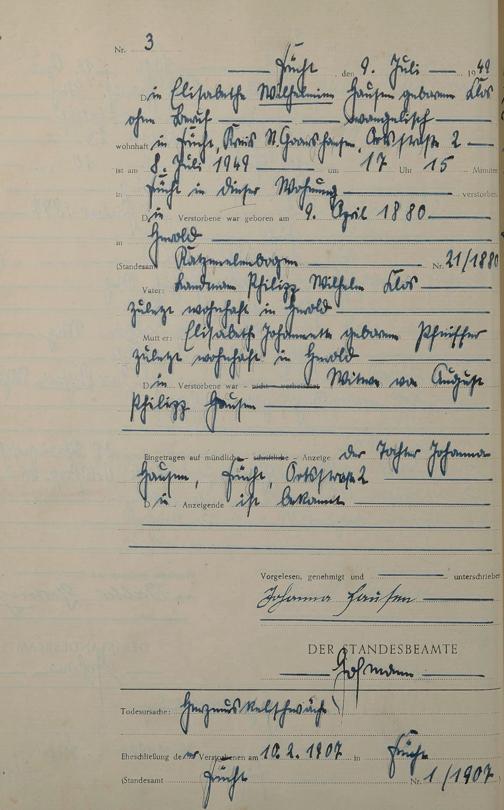 Nr. 3
Frücht, den 9. Juli 1949
Die Elisabethe Wilhelmine Hausen geborene Klos
ohne Beruf evangelisch
wohnhaft in Frücht, Kreis St. Goarshausen, Ortsstraße 2
ist am 8. Juli 1949 um 17 Uhr 15 Minuten
in Frücht in dieser Wohnung verstorben
Die Verstorbene war geboren am 9. April 1880
in Herold
(Standesamt Katzenelnbogen Nr. 21/1880
Vater: Landmann Philipp Wilhelm Klos
zuletzt wohnhaft in Herold
Mutter: Elisabeth Johannette geborene Pfeiffer
zuletzt wohnhaft in Herold
Die Verstorbene war – nicht – verheiratet Witwe von August
Philipp Hausen
Eingetragen auf mündliche – schriftliche – Anzeige der Tochter Johanna
Hausen, Frücht, Ortsstraße 2
Die Anzeigende ist bekannt
Vorgelesen, genehmigt und unterschrieben
Johanna Hausen
DER STANDESBEAMTE
Todesursache: Herzmuskelschwäche
Eheschließung der Verstorbenen am 10.2.1907 in Frücht
(Standesamt Frücht Nr. 1/1907